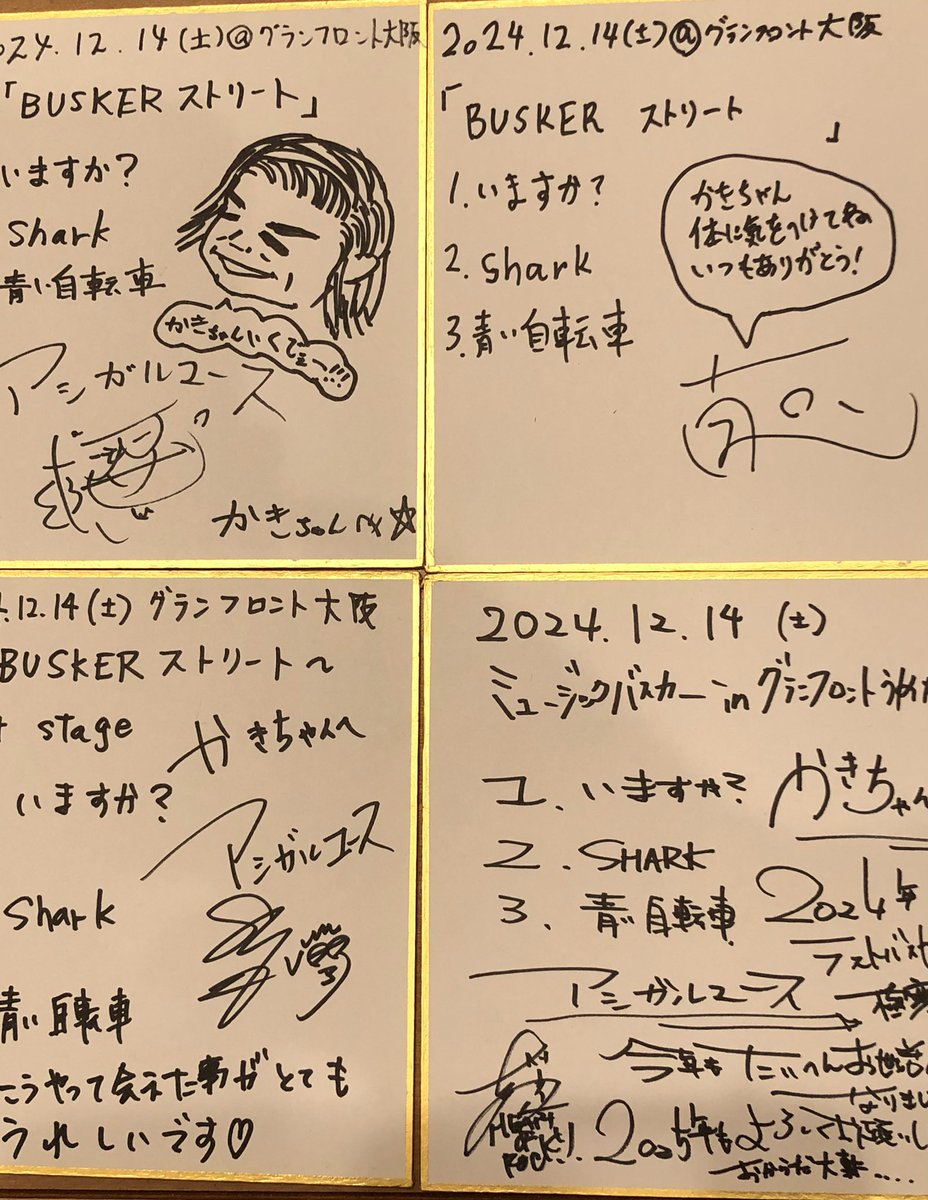 2024.12.14(土)@グランフロント大阪
「BUSKER ストリート」
いますか?
shark
青い自転車
かきちゃんいくでぇー!!!
アシガルユース
かきちゃんへ☆
2024.12.14(土)@グランフロント大阪
「BUSKER ストリート」
1.いますか?
2. shark
3.青い自転車
かきちゃん
体に気をつけてね
いつもありがとう!
.12.14(土) グランフロント大阪
BUSKER ストリート〜
stage
かきちゃんへ
いますか?
アシガルユース
Shark
青い自転車
こうやって会えた事が とても
うれしいです♡
2024.12.14 (土)
ミュージックバスカー in グランフロントうめ
1. いますか?
かきちゃん
2. SHARK
3. 青い自転車
2024年
ラストバス
アシガルユース
今年も たいへんお世話
なりまし
HEART
OF
ROCK!!
2025年もよろしくお願いし